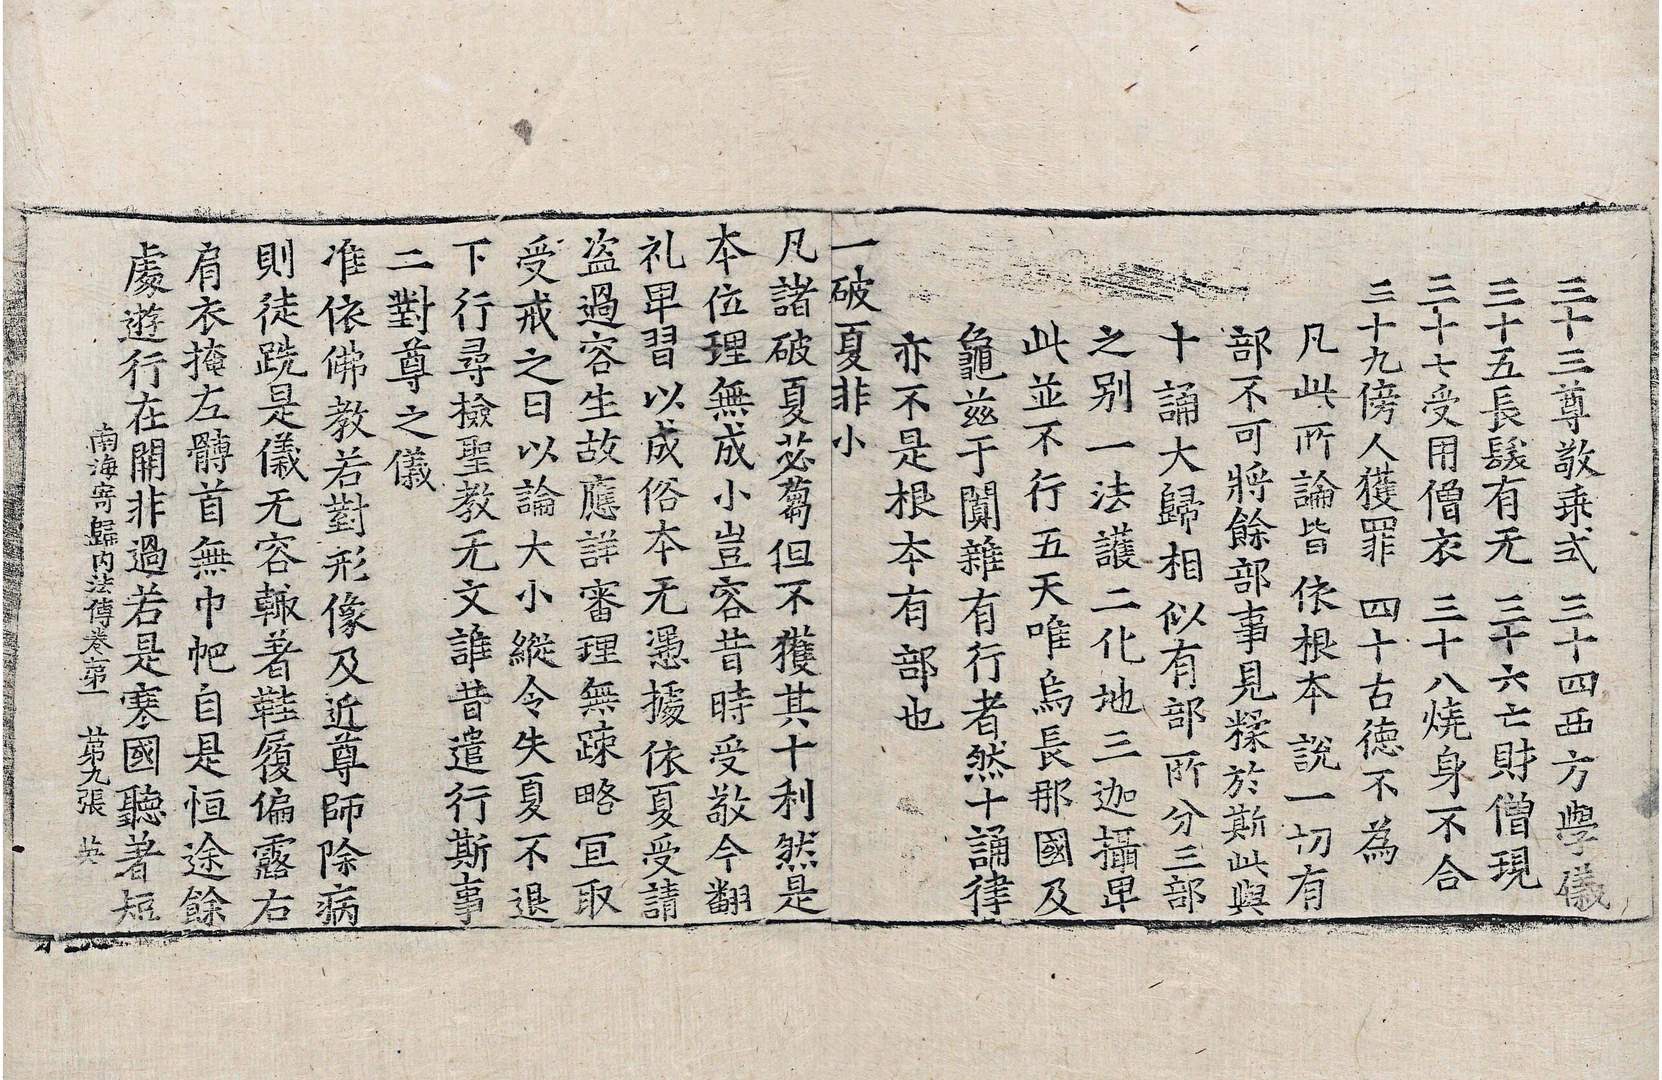 三十三尊敬乖式 三十四西方學儀
三十五長髮有无 三十六亡財僧現
三十七受用僧衣 三十八燒身不合
三十九傍人獲罪 四十古德不為
凡此所論皆依根本說一切有
部不可將餘部事見糅於斯此與
十誦大歸相似有部所分三部
之別一法護二化地三迦攝卑
此並不行五天唯烏長那國及
龜茲于闐雜有行者然十誦律
亦不是根本有部也
一破夏非小
凡諸破夏苾蒭但不獲其十利然是
本位理無成小豈容昔時受敬今翻
礼卑習以成俗本无憑據依夏受請
盜過容生故應詳審理無踈略冝取
受戒之日以論大小縱令失夏不退
下行尋撿聖教无文誰昔遣行斯事
二對尊之儀
准依佛教若對形像及近尊師除病
則徒跣是儀无容輙著鞋履偏露右
肩衣掩左髆首無巾帊自是恒途餘
處遊行在開非過若是寒國聽著短
南海寄歸內法傳卷第一 第九張 英